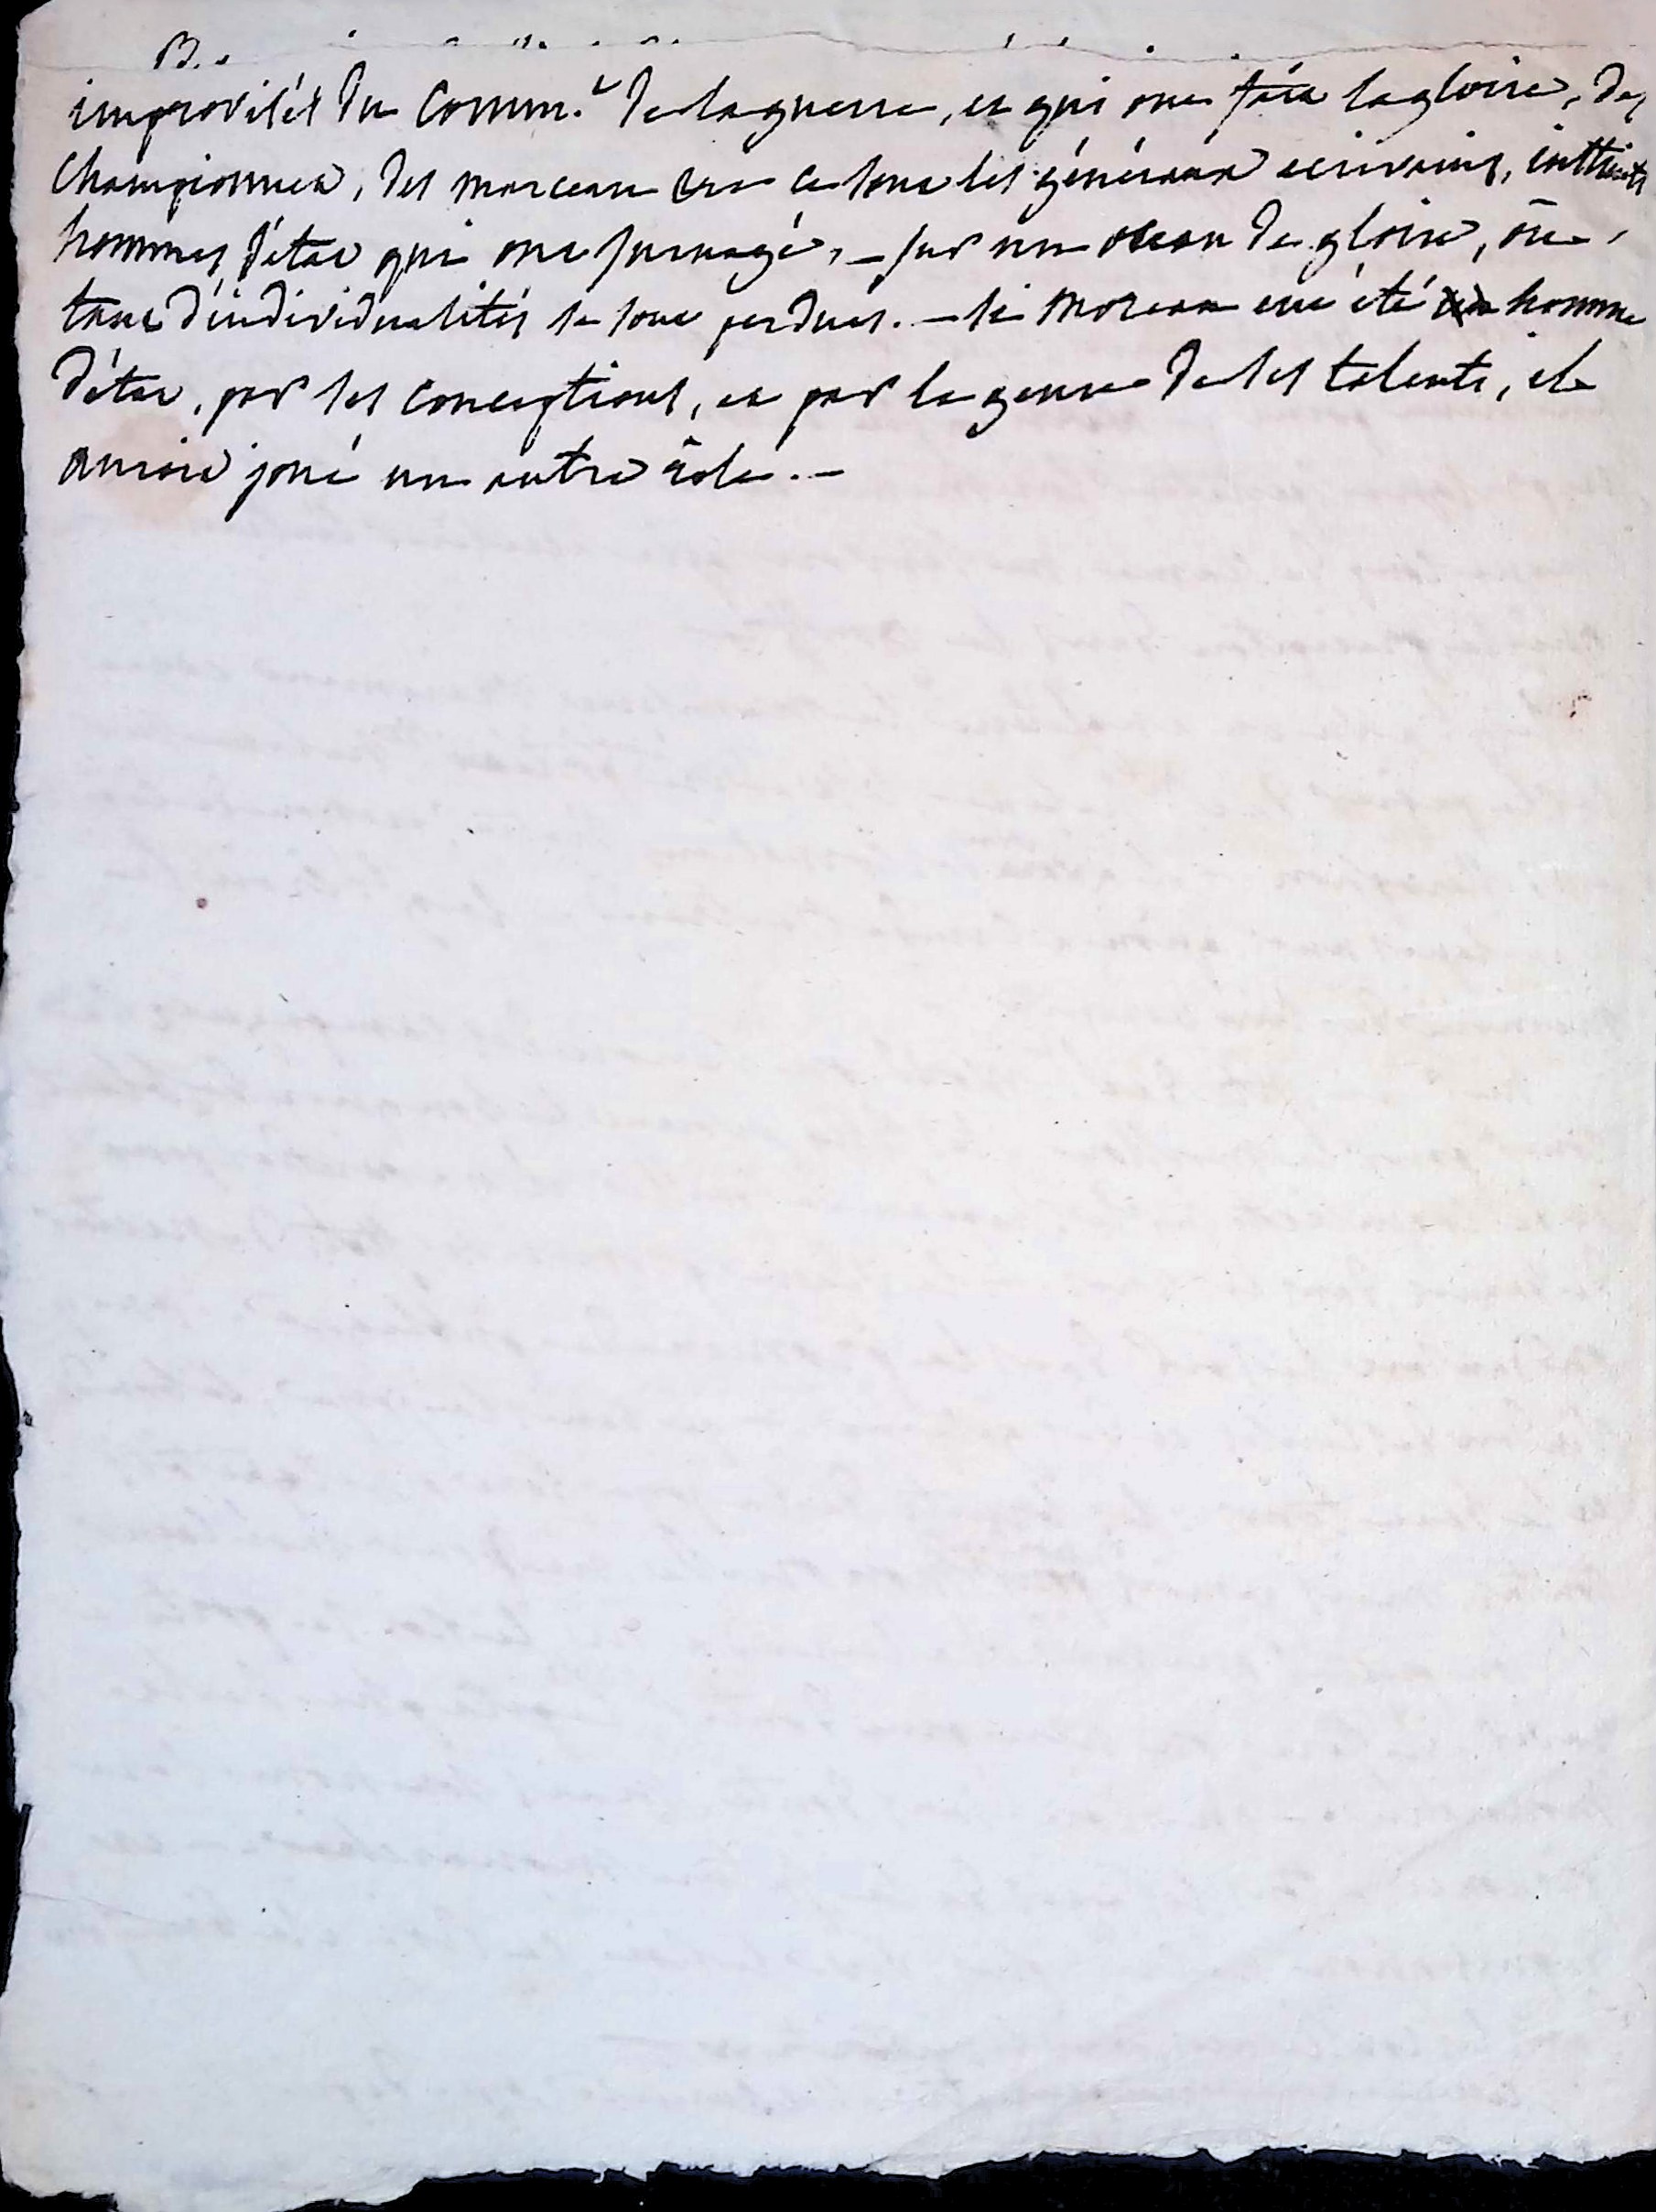 improvisés du Comm.t de la guerre, et qui ont fait la gloire, des
Championnet, des marceau &c ce sont les généraux ecrivains,
hommes d'état qui ont surnagé, – sur un océan de gloire, où
tant d'individualités se sont perdues. – si Moreau eut été homme
d'état, par ses conceptions, et par le genre de ses talents, il
auroit joué un autre rôle. –